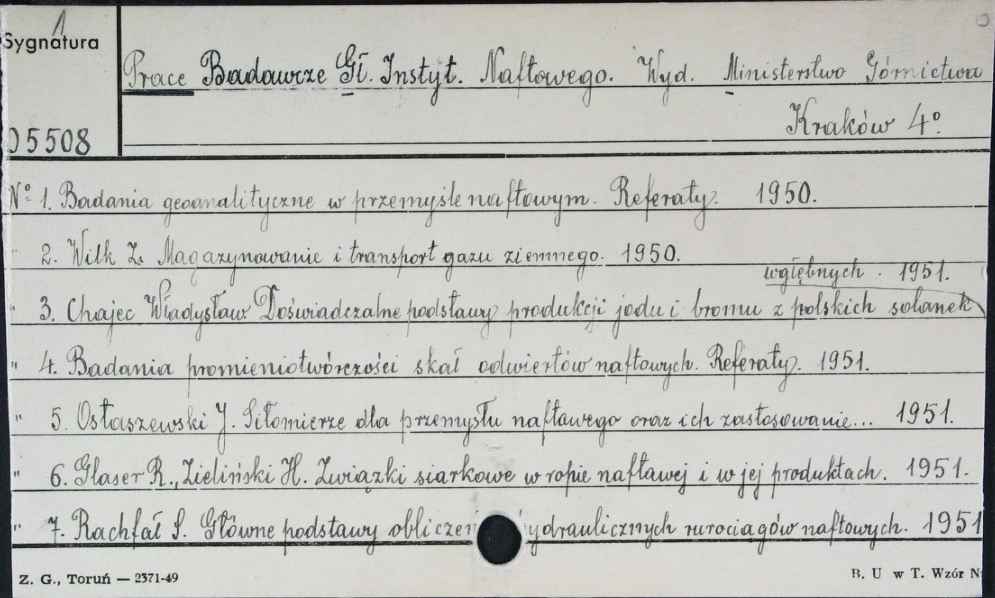 1
Sygnatura
Prace Badawcze Gł. Instyt. Naftowego. Wyd. Ministerstwo Górnictwa
Kraków 4°.
05508
N° 1. Badania geoanalityczne w przemyśle naftowym. Referaty. 1950.
" 2. Wilk Z. Magazynowanie i transport gazu ziemnego. 1950.
wgłębnych. 1951.
" 3. Chajec Władysław Doświadczalne podstawy produkcji jodu i bromu z polskich solanek
" 4. Badania promieniotwórczości skał odwiertów naftowych. Referaty. 1951.
" 5. Ostaszewski J. Siłomierze dla przemysłu naftawego oraz ich zastosowanie... 1951.
" 6. Glaser R., Zieliński H. Związki siarkowe w ropie naftawej i w jej produktach. 1951.
" 7. Rachfał S. Główne podstawy obliczeń ydraulicznych rurociągów naftowych. 1951
Z. G., Toruń — 2371-49
B. U w T. Wzór N